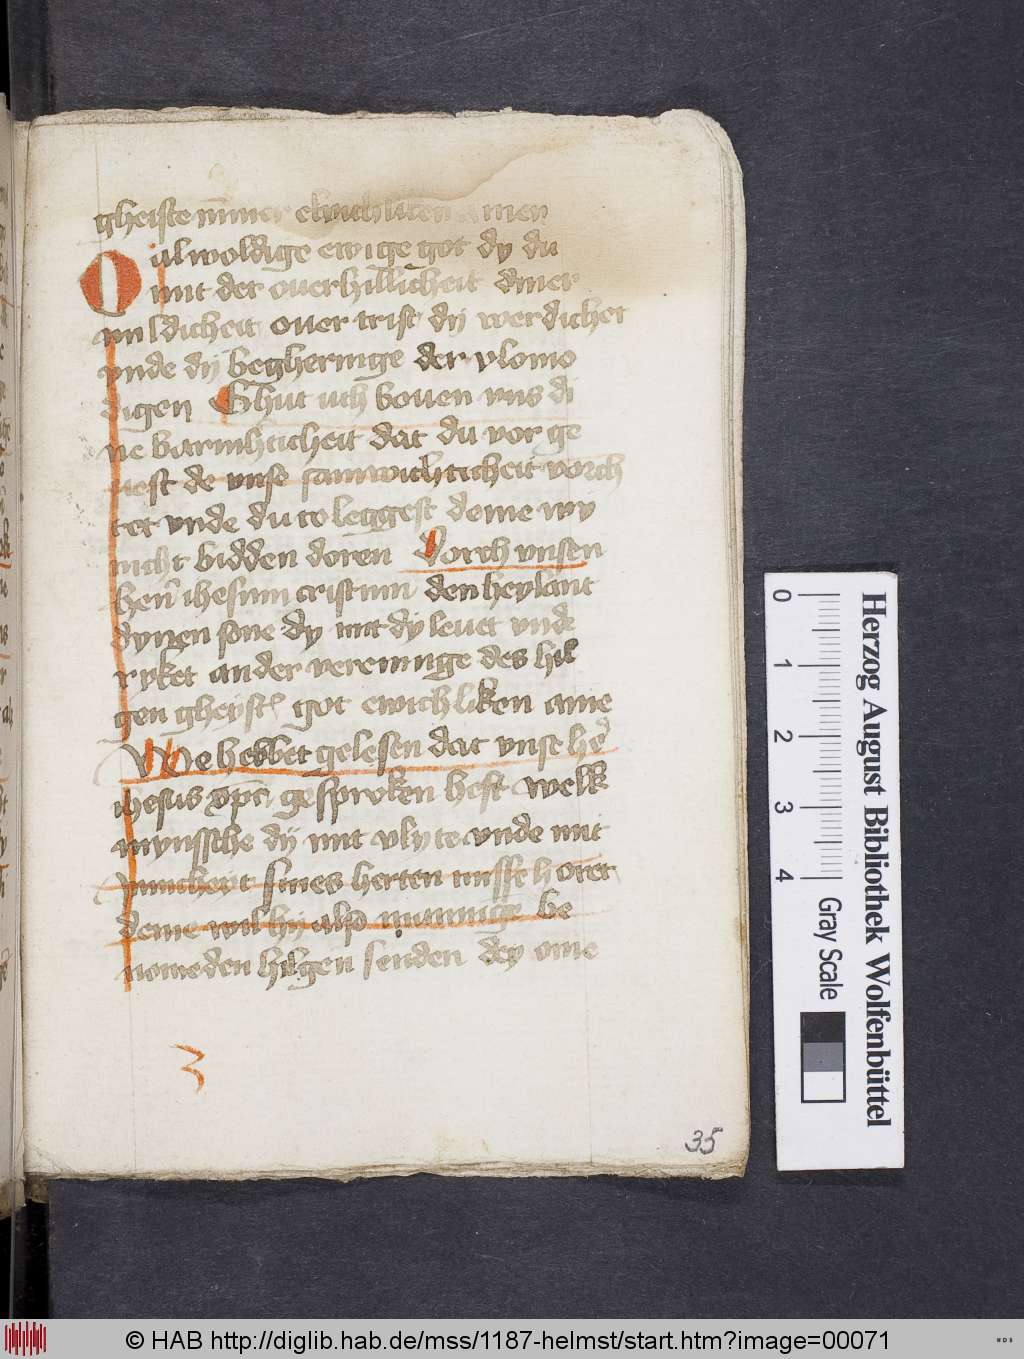 gheiste nummer ewichliken Amen
O alwoldige ewige got dy du
mit der ouerhillicheit diner
mildicheit ouer trist dij werdichet
vnde dij begheringe der ylomo
digen Ghut uth bouen vns di
ne barmhticheit dat du vor ge
nest de vnse samwichticheit vorch
tet vnde du to leggest deme wy
nicht bidden doren Dorch vnsen
hern ihesum cristum den heylant
dynen sone dy mit dy leuet vnde
ryket an der vereninge des hil
gen gheystes got ewichliken ame
We hebbet gelesen dat vnse here
ihesus xpc gesproken heft welk
mynssche dij mit vlyte vnde mit
ynnicheyt sines herten misse horet
deme wil hij also mannige be
nomeden hilgen senden dey ome
35
Herzog August Bibliothek Wolfenbüttel
0 1 2 3 4 Gray Scale
© HAB http://diglib.hab.de/mss/1187-helmst/start.htm?image=00071